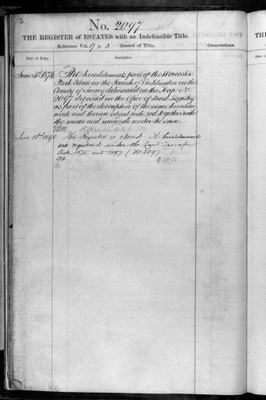 5
No. 2097
THE REGISTER of ESTATES with an Indefeasible Title.
Reference Vol. 17 & 3 Record of Title.
Date of Entry.
Description.
Observations.
The hereditaments part of the Worcester
Park Estate in the Parish of Cuddington in the
County of Surrey delineated on the Map No.
2097 deposited in the Office of Land Registry
as part of the description of the same heredita-
ments and thereon edged with red together with
the mines and minerals under the same.
The Register is closed. The hereditaments
are registered under the Land Transfer
Acts 1875 and 1897